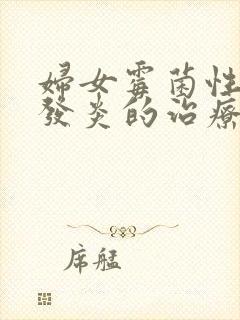 婦女霉菌性
發炎的治療
席艋